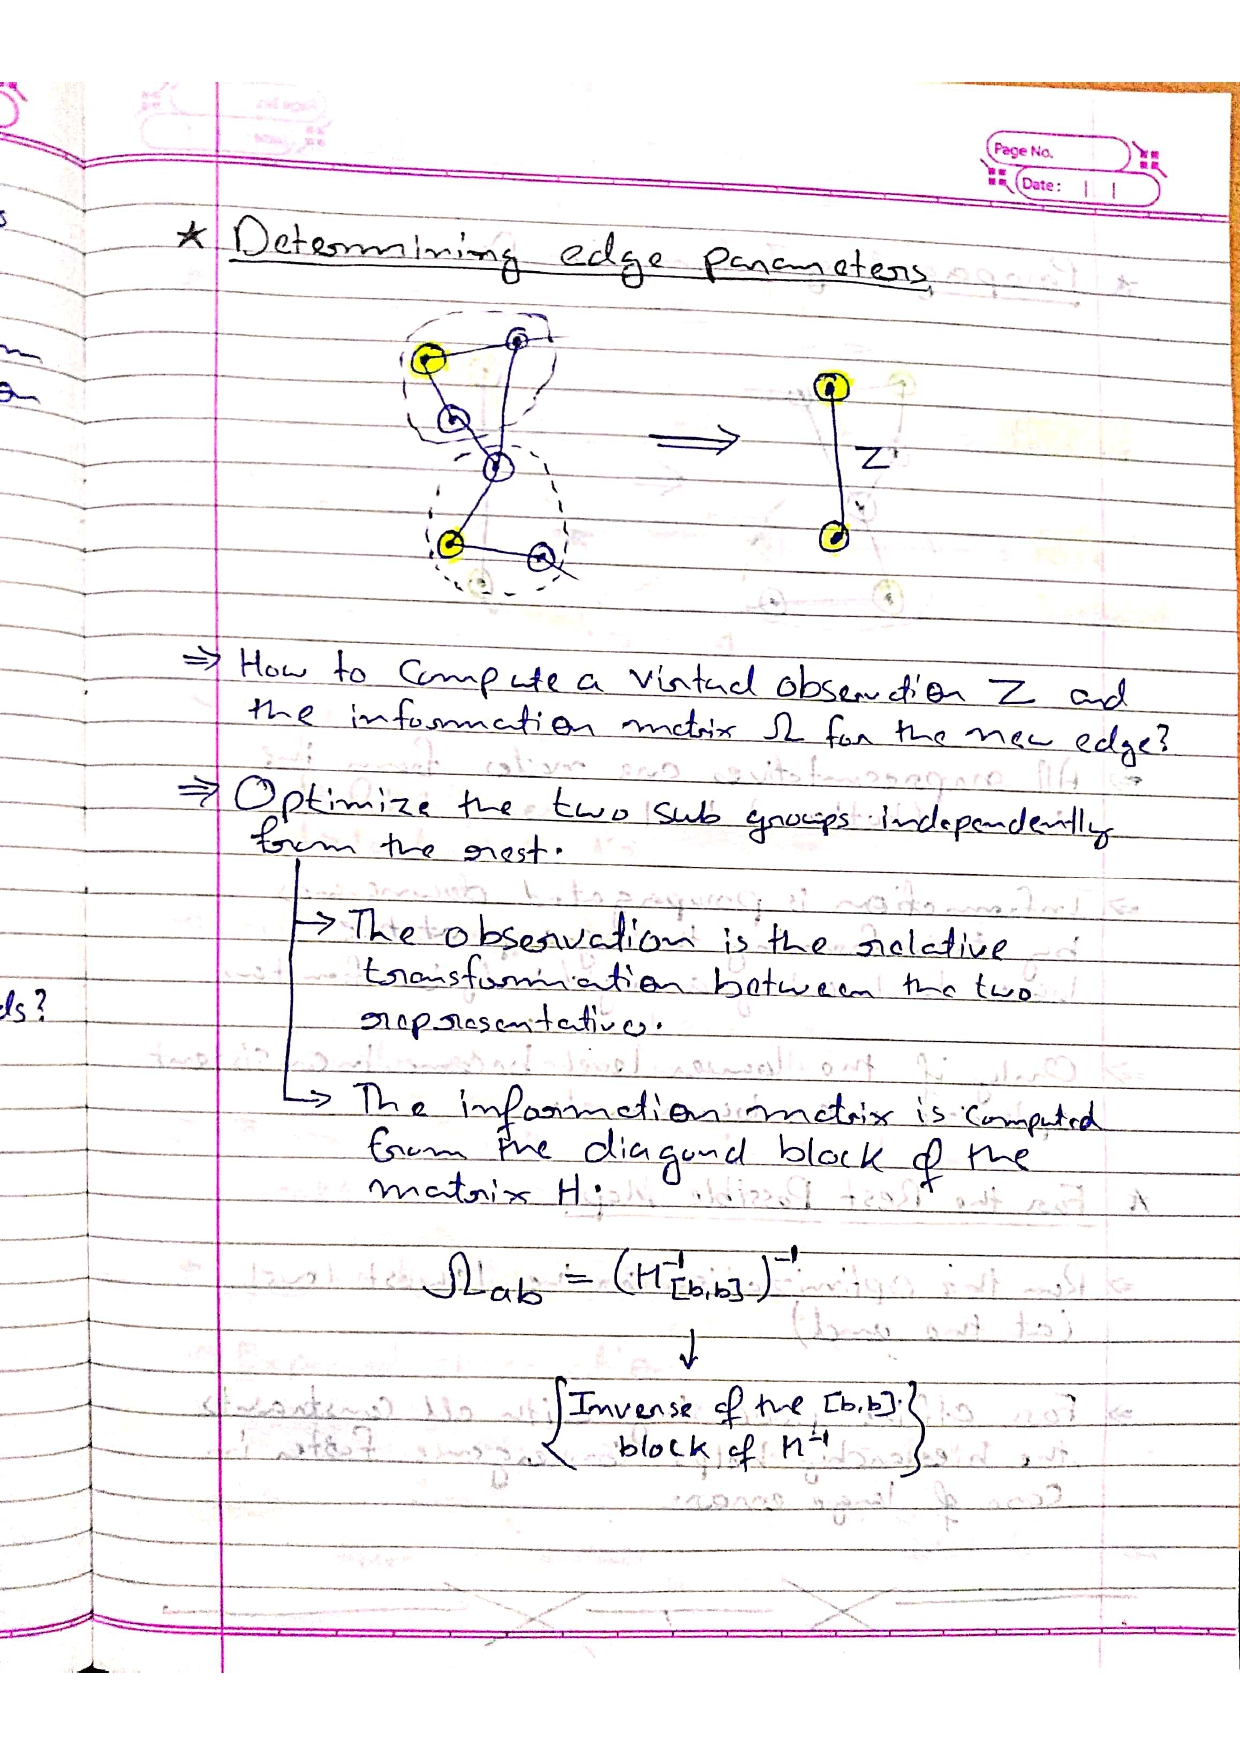 Page No.
Date:
★ Determining edge parameters
Z
⇒ How to compute a virtual observation Z and
the information matrix Ω for the new edge?
⇒ Optimize the two sub groups independently
from the rest.
→ The observation is the relative
transformation between the two
representatives.
→ The information matrix is computed
from the diagonal block of the
matrix H.
Ωab = (H⁻¹[b,b])⁻¹
↓
{Inverse of the [b,b]
block of H⁻¹}
ds?